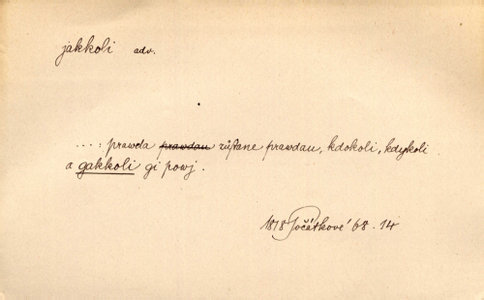 jakkoli adv.
.... prawda prawdau zůstane prawdau, kdokoli, kdykoli
a gakkoli gi powj.
1818 Počátkové 68.14